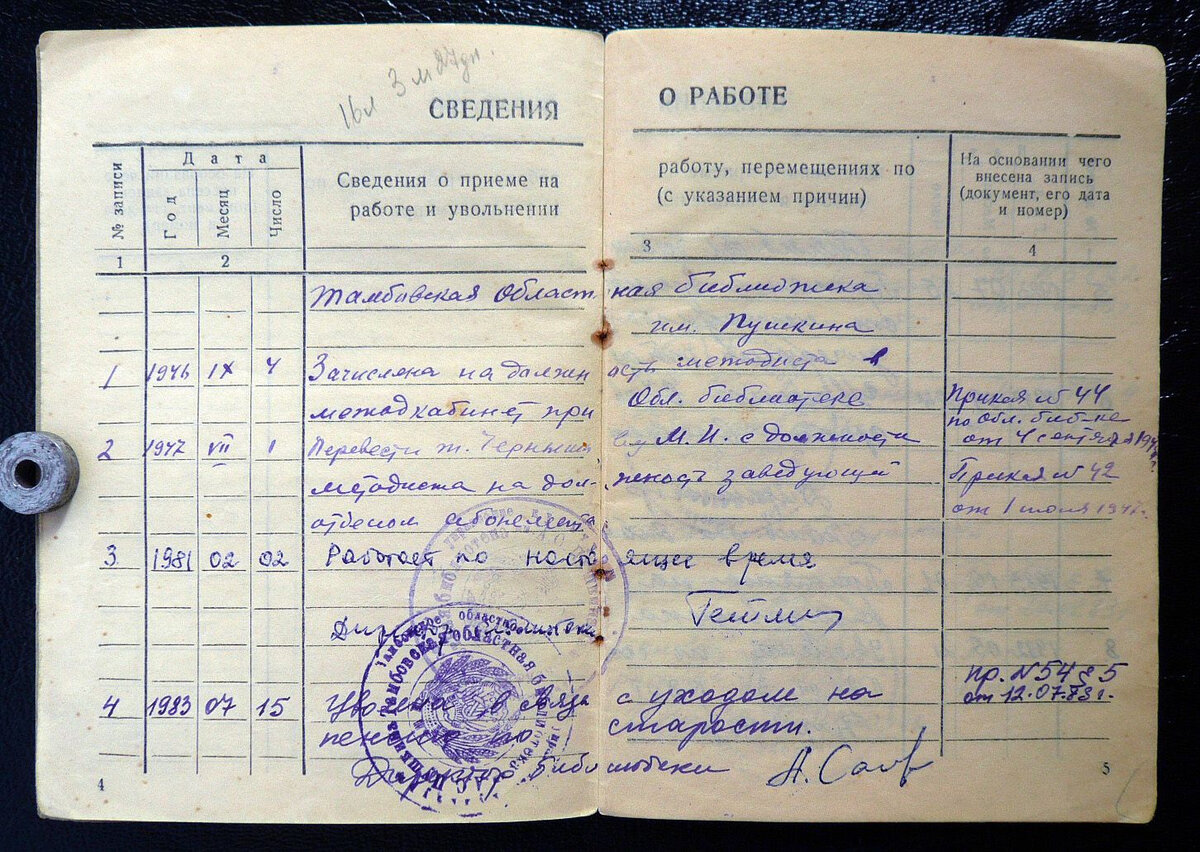 16л 3м 27дн.
СВЕДЕНИЯ О РАБОТЕ
№ записи
Дата
Год
Месяц
Число
Сведения о приеме на работу, перемещениях по
работе и увольнении (с указанием причин)
На основании чего
внесена запись
(документ, его дата
и номер)
1 2 3 4
Тамбовская Областная библиотека
им. Пушкина
1 1946 IX 4 Зачислена на должность методиста в
методкабинет при Обл. библиотеке Приказ № 44
по Обл. биб-ке
от 4 сентября
2 1947 VII 1 Перевести т. М. И. с должности
методиста на должность заведующей Приказ № 42
отделом абонемента от 1 июля 1947г.
3 1981 02 02 Работает по настоящее время
Директор библиотеки
4 1983 07 15 Уволена в связи с уходом на пр. № 548
пенсию по старости. от 12.07.83г.
Директор библиотеки
4 5